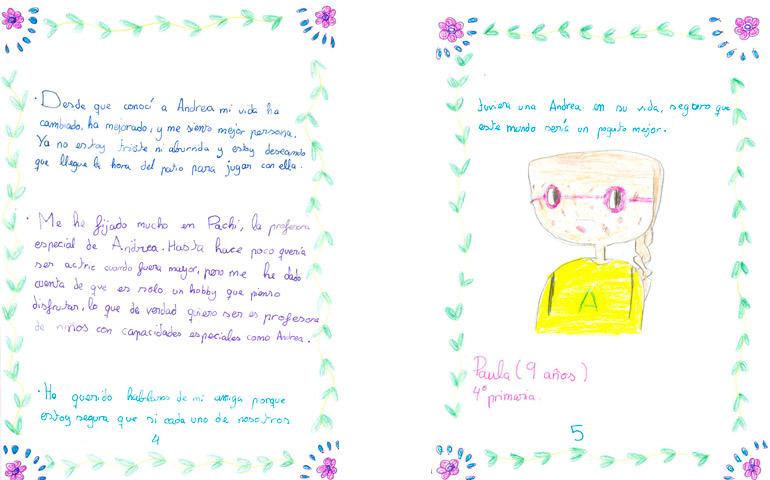 · Desde que conocí a Andrea mi vida ha
cambiado, ha mejorado, y me siento mejor persona.
Ya no estoy triste ni aburrida y estoy deseando
que llegue la hora del patio para jugar con ella.
· Me he fijado mucho en Pachi, la profesora
especial de Andrea. Hasta hace poco quería
ser actriz cuando fuera mayor, pero me he dado
cuenta de que es solo un hobby que pienso
disfrutar, lo que de verdad quiero ser es profesora
de niños con capacidades especiales como Andrea.
· He querido hablaros de mi amiga porque
estoy segura que si cada uno de nosotros
4
tuviera una Andrea en su vida, seguro que
este mundo sería un poquito mejor.
A
Paula (9 años)
4º primaria.
5